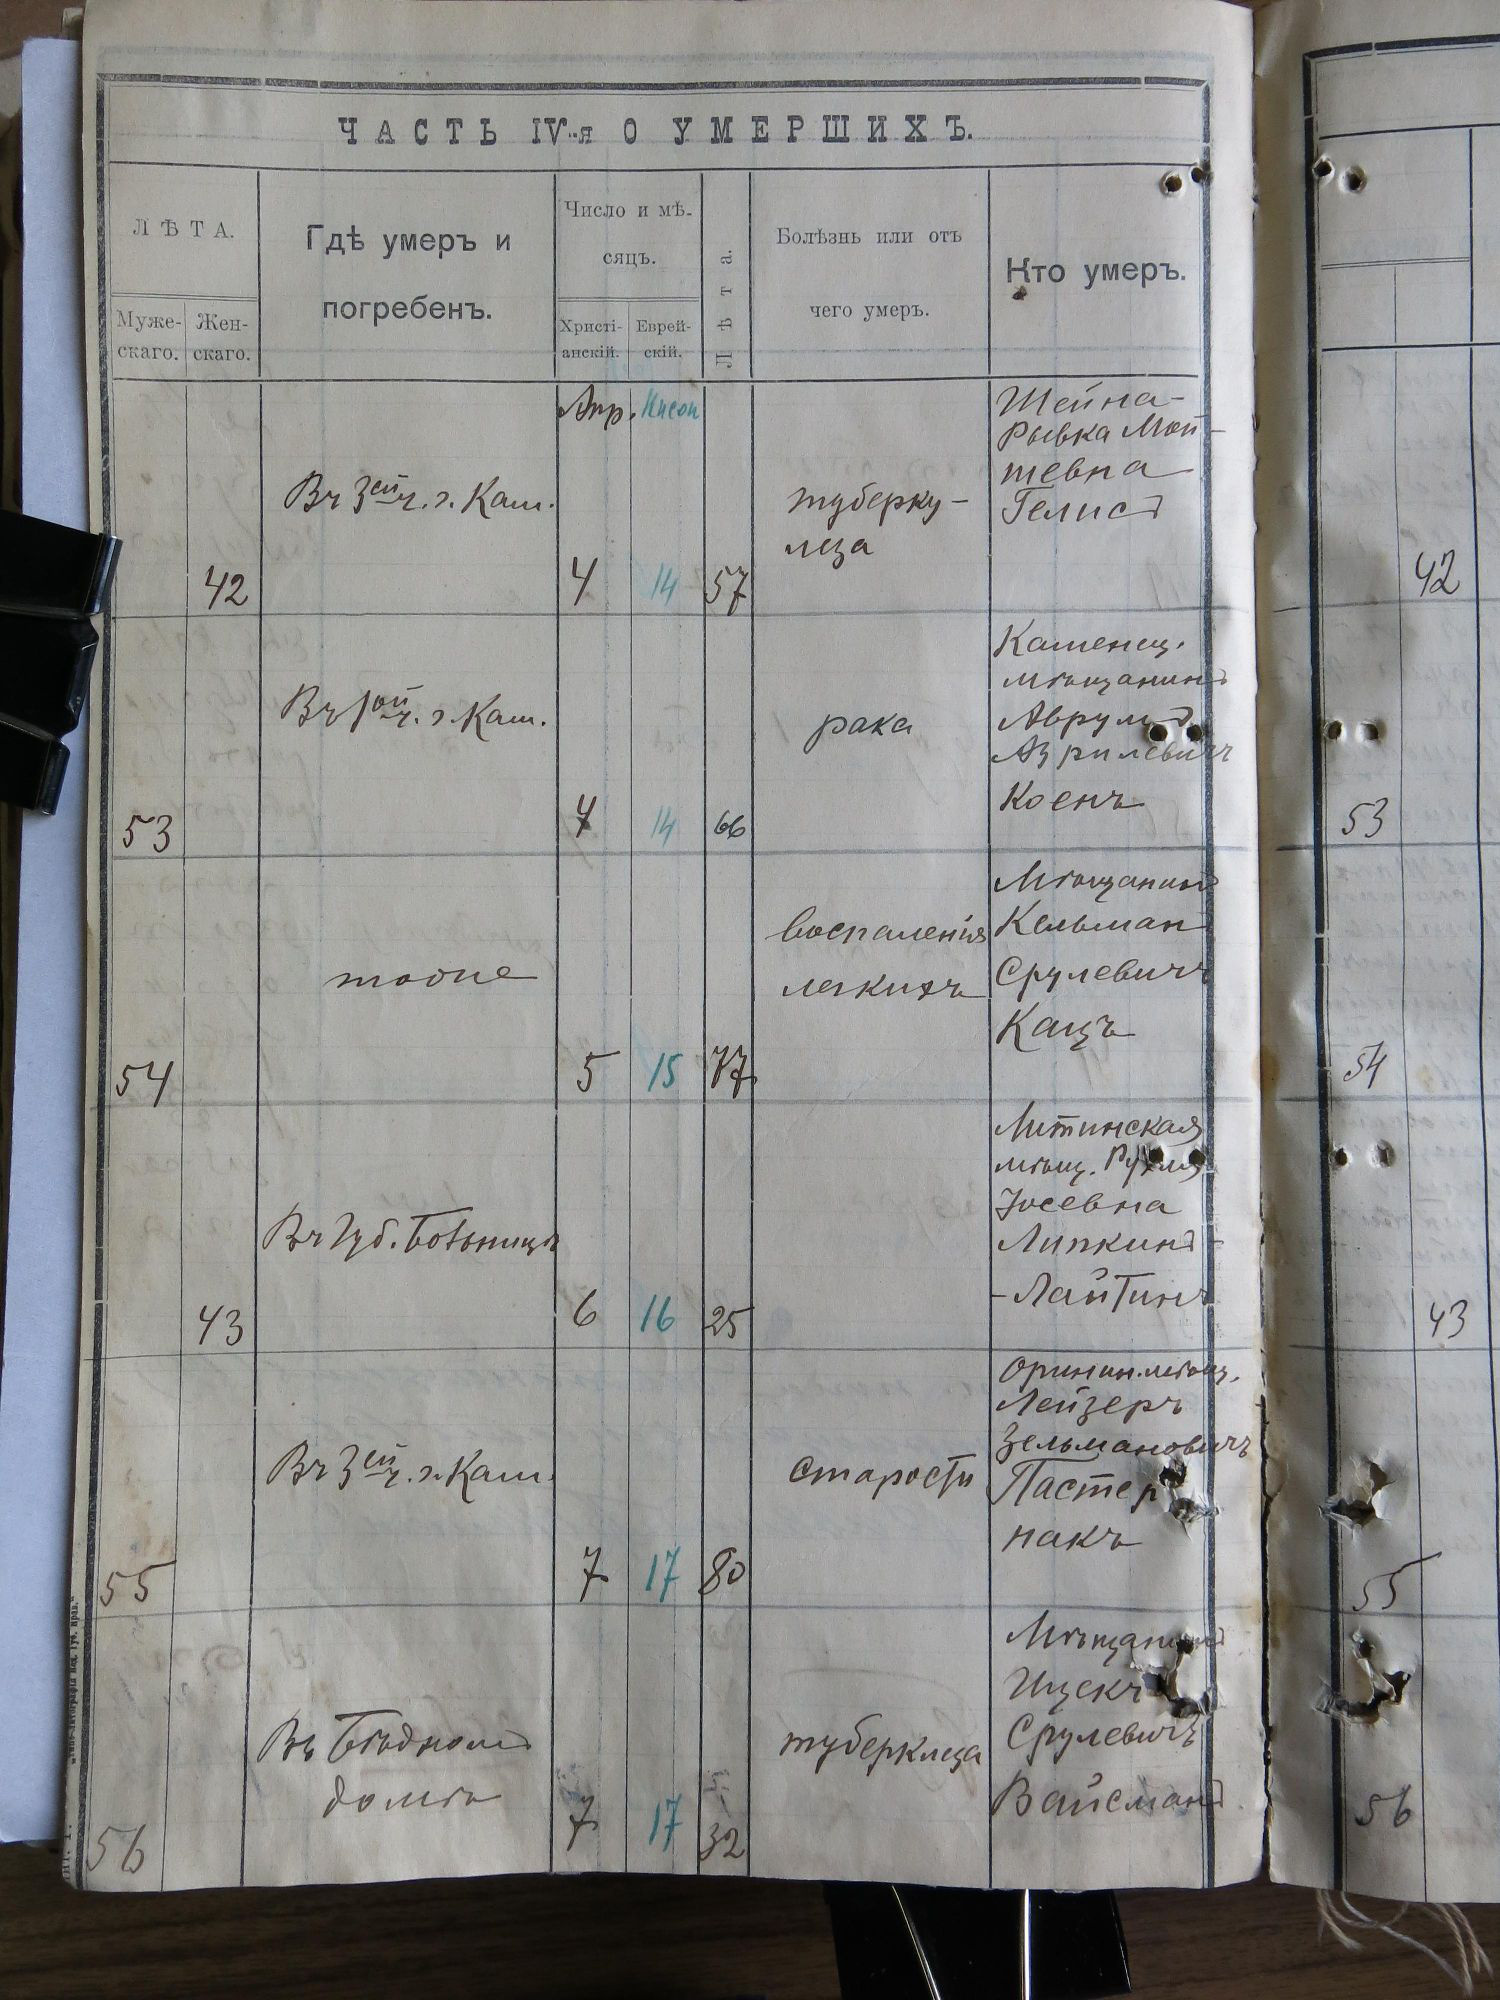 ЧАСТЬ IV-я О УМЕРШИХЪ.
ЛѢТА.
Муже-
скаго.
Жен-
скаго.
Гдѣ умеръ и
погребенъ.
Число и мѣ-
сяцъ.
Христі-
анскій.
Еврей-
скій.
Лѣта.
Болѣзнь или отъ
чего умеръ.
Кто умеръ.
Апр. Нисон
42
Въ 3ей ч. г. Кам.
4 14 57
туберку-
леза
Шейна-
Рывка Мой-
шевна
Гелис
53
Въ 1ой ч. г. Кам.
4 14 66
рака
Каменец.
мѣщанинъ
Аврумъ
Азрилевичъ
Коенъ
54
тоже
5 15 77
воспаленія
легкихъ
Мѣщанинъ
Кельманъ
Срулевичъ
Кацъ
43
Въ Губ. Больницѣ
6 16 25
Литинская
мѣщ. Рухля
Іосевна
Липкинъ-
-Лайтинъ
55
Въ 3ей ч. г. Кам.
7 17 80
старости
Оринин. мѣщ.
Лейзеръ
Зельмановичъ
Пастер
накъ
56
Въ Бѣдномъ
домѣ
7 17 32
туберклеза
Мѣщанинъ
Ицекъ
Срулевичъ
Вайсманъ
42
53
54
43
55
56